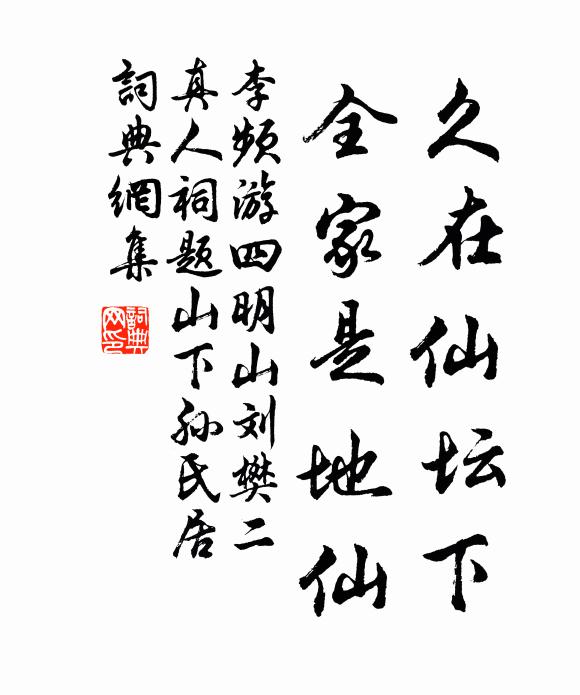 久在仙坛下
全家是地仙
李频游四明山刘樊二
真人祠题山下孙氏居
詞典網集
詞典
网印